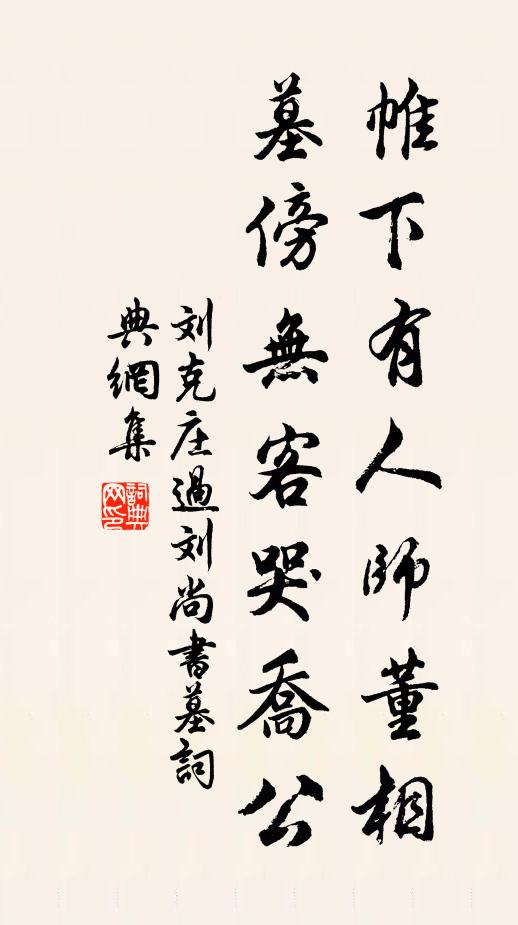 帷下有人師董相
墓傍無客哭喬公
刘克庄過刘尚書墓詞
典網集
詞典网印